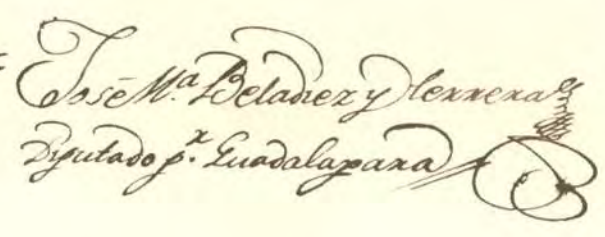 José M.ª Beladiez y Herrera
Diputado p.r Guadalaxara